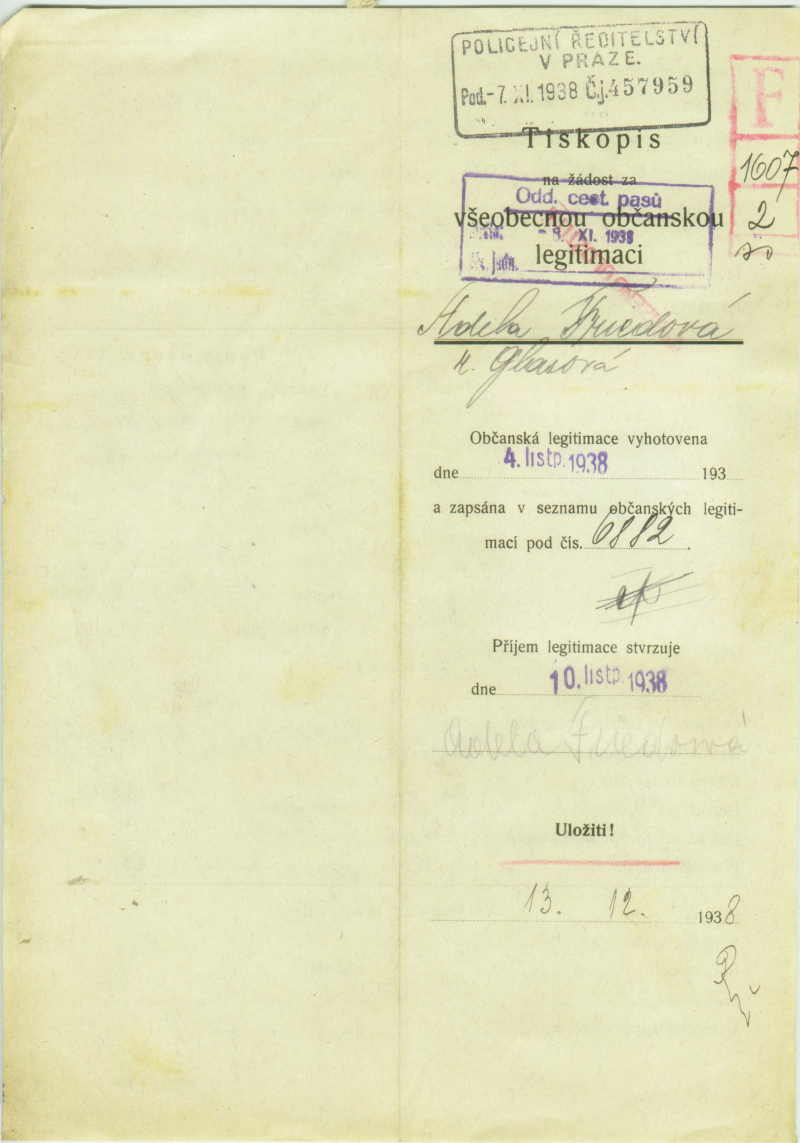 POLICEJNÍ ŘEDITELSTVÍ
V PRAZE.
Pod. -7. XI. 1938 Č.j. 457959
F
1607
2
Tiskopis
na žádost za
Odd. cest. pasů
všeobecnou občanskou
XI. 1938
legitimaci
Adela Friedová
Glasová
Občanská legitimace vyhotovena
dne 4. listp. 1938 193
a zapsána v seznamu občanských legiti-
mací pod čís. 6882.
Příjem legitimace stvrzuje
dne 10. listp. 1938
Adela Friedová
Uložiti!
13. 12. 1938